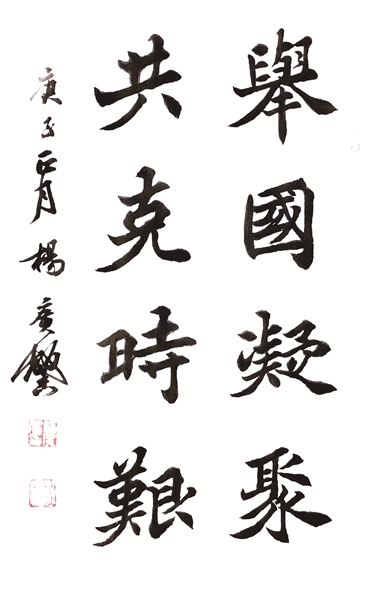 舉國凝聚
共克時艱
庚子正月楊廣馨